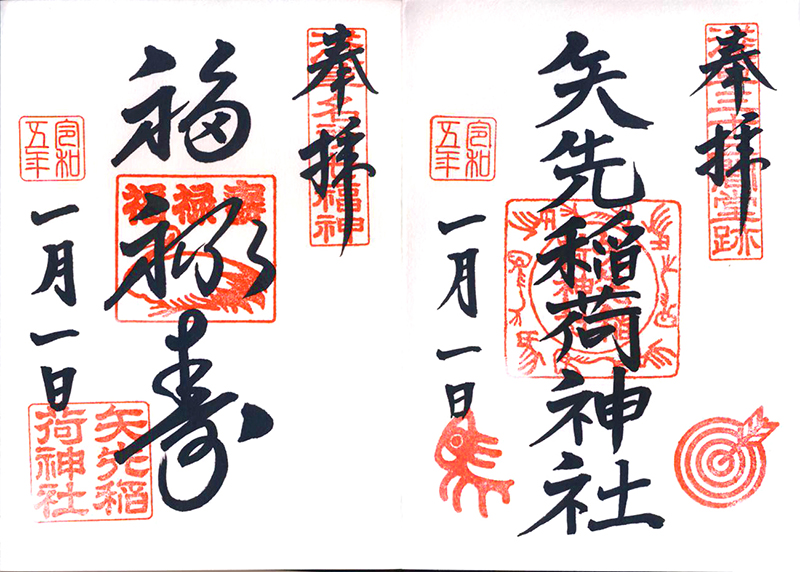 奉拝
浅草三十三間堂跡
矢先稲荷神社
令和
五年
一月一日
奉拝
浅草名所七福神
福禄寿
福禄壽
令和
五年
一月一日
矢先稲
荷神社